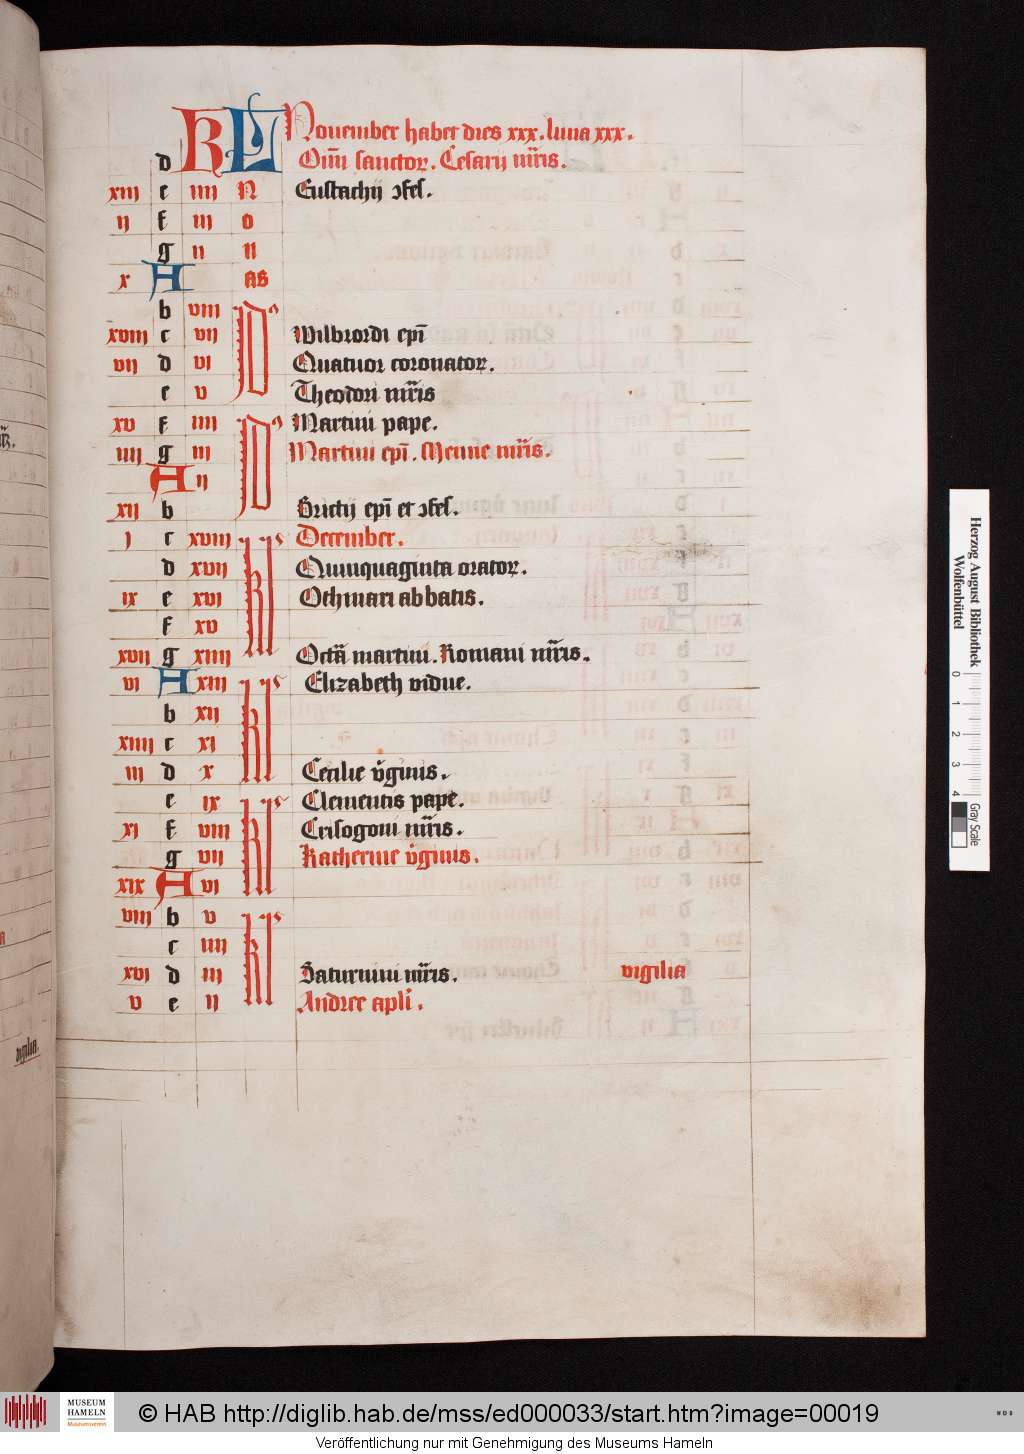 KL November habet dies xxx. luna xxx.
d Om̄ sanctoꝝ. Cesarij mr̄is.
xiii e iiii N Eustachij ↄfes.
ii f iii o
g ii n
x A as
b viii Id9
xviii c vii Wilbrordi ep̄i
vii d vi Quatuor coronatoꝝ.
e v Theodori mr̄is
xv f iiii Id9 Martini pape.
iiii g iii Martini ep̄i. Menne mr̄is.
A ii
xii b Brictij ep̄i et ↄfes.
i c xviii kls December.
d xvii Quinquaginta oratoꝝ.
ix e xvi Othmari abbatis.
f xv
xvii g xiiii Octā martini. Romani mr̄is.
vi A xiii kls Elizabeth vidue.
b xii
xiiii c xi
iii d x Cecilie v̄ginis.
e ix kls Clementis pape.
xi f viii Crisogoni mr̄is.
g vii Katherine v̄ginis.
xix A vi
viii b v kls
c iiii
xvi d iii Saturnini mr̄is. vigilia
v e ii Andree apl̄i.
vigilia.
Herzog August Bibliothek
Wolfenbüttel
0 1 2 3 4
Gray Scale
MUSEUM
HAMELN
Museumsverein
© HAB http://diglib.hab.de/mss/ed000033/start.htm?image=00019
Veröffentlichung nur mit Genehmigung des Museums Hameln